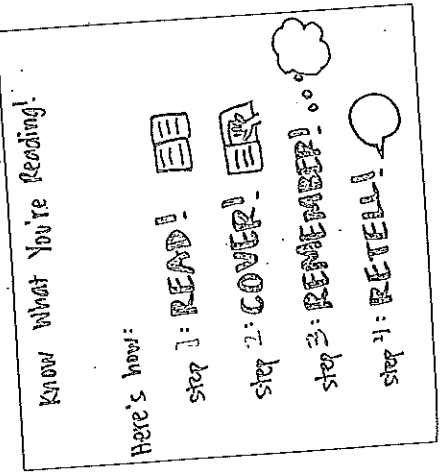 Know What You're Reading!
Here's how:
step 1: READ!
step 2: COVER!
step 3: REMEMBER!
step 4: RETELL!